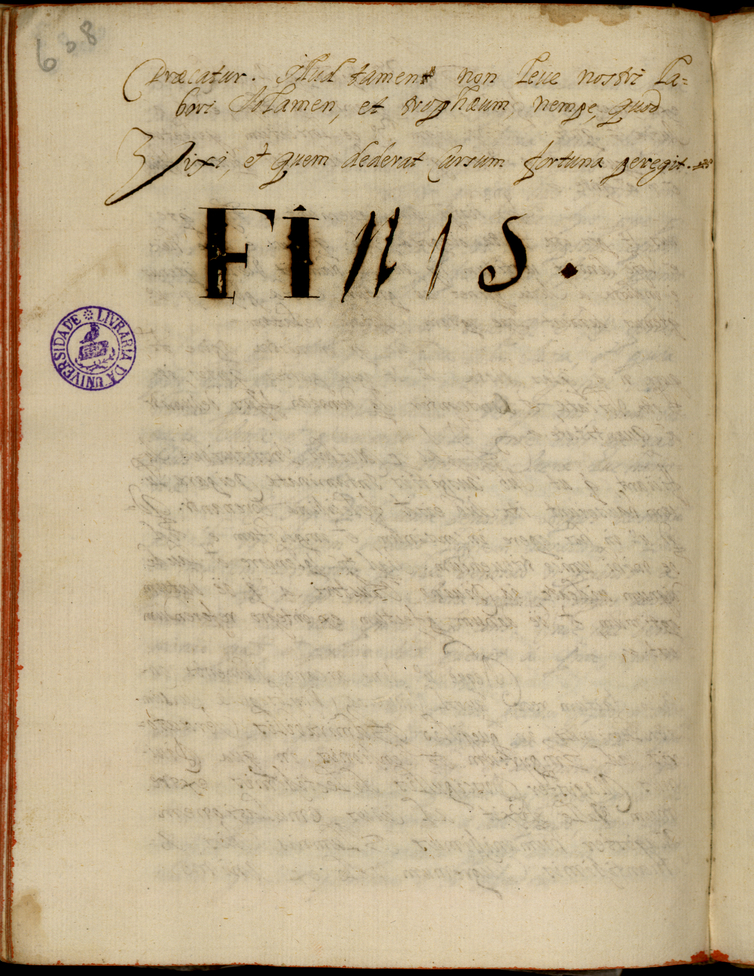 638
Præcatur. Illud tamen non leve nostri la=
bori solamen, et trophæum, nempe, quod
Vixi, et quem dederat Cursum fortuna peregit.
FINIS.
LIVRARIA DA UNIVERSIDADE